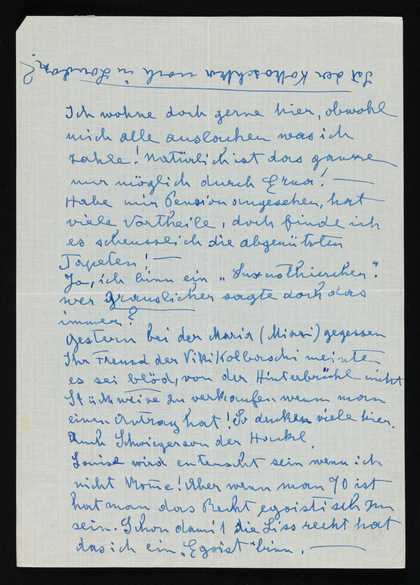 Ist der Kokoschka noch in London?
Ich wohne doch gerne hier, obwohl
mich alle auslachen was ich
zahle! Natürlich ist das ganze
nur möglich durch Erna! —
Habe mir Pension angesehen, hat
viele Vortheile, doch finde ich
es scheusslich die abgenützten
Tapeten! —
Ja, ich binn ein „Luxusthierchen".
wer Grauslicher sagte doch das
immer?
Gestern bei der Maria (Mizzi) gegessen
Ihr Freund der Viki Kolborschi meinten
es sei blöd, von der Hinterbrühl nicht
Stückweise zu verkaufen wenn man
einen Antrag hat! So denken viele hier.
Auch Schwiegerson der
Louise wird entenscht sein wenn ich
nicht kome! Aber wenn man 70 ist
hat man das Recht egoistisch zu
sein. Schon damit die Liss recht hat
das ich ein „Egoist" binn. —